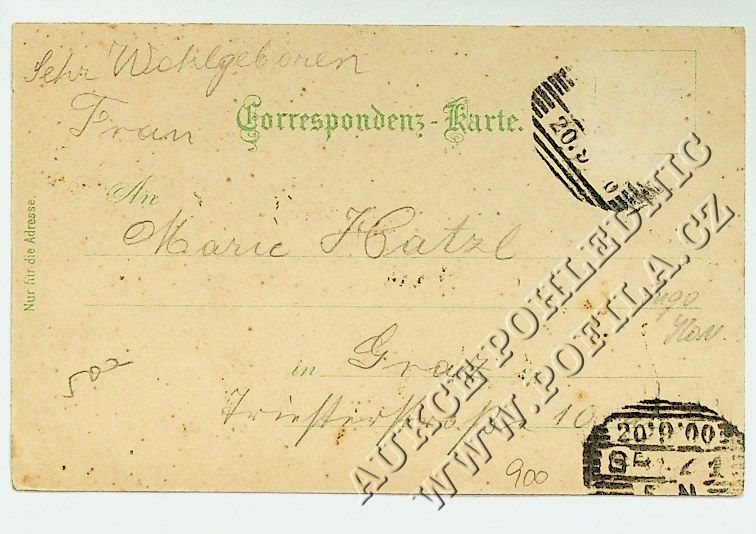 Sehr Wohlgeboren
Frau
Correspondenz-Karte.
20.9
An
Marie Hatzl
Nur für die Adresse.
in Graz
Triesterstrasse 10
500
900
20.9.00
AUKCE POHLEDNIC
WWW.POFILA.CZ